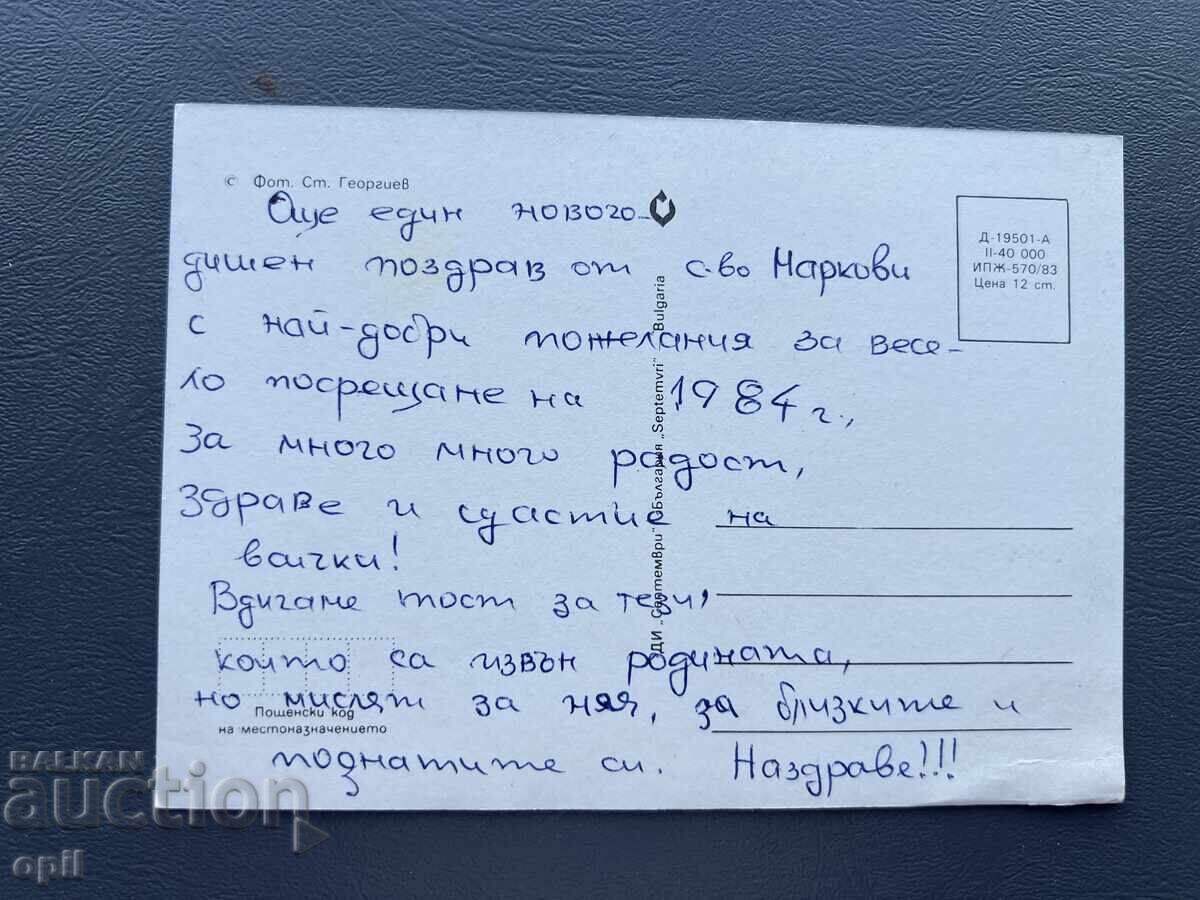 © Фот. Ст. Георгиев
Още един нового-
дишен поздрав от с-во Маркови
с най-добри пожелания за весе-
ло посрещане на 1984 г.,
за много много радост,
здраве и щастие на
всички!
Вдигаме тост за тези,
които са извън родината,
но мислят за нея, за близките и
познатите си. Наздраве!!!
Д-19501-А
II-40 000
ИПЖ-570/83
Цена 12 ст.
ДИ „Септември" България „Septemvri" Bulgaria
Пощенски код
на местоназначението
BALKAN
auction
opil